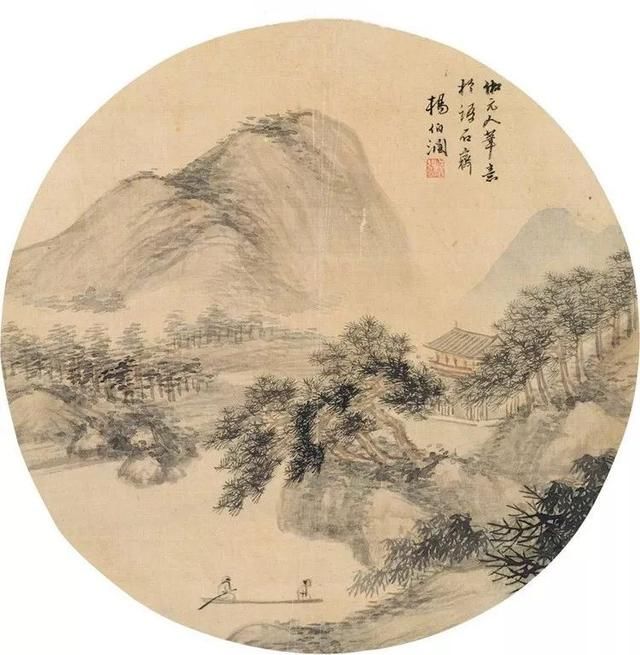 倣元人筆意
於語石齋
楊伯潤